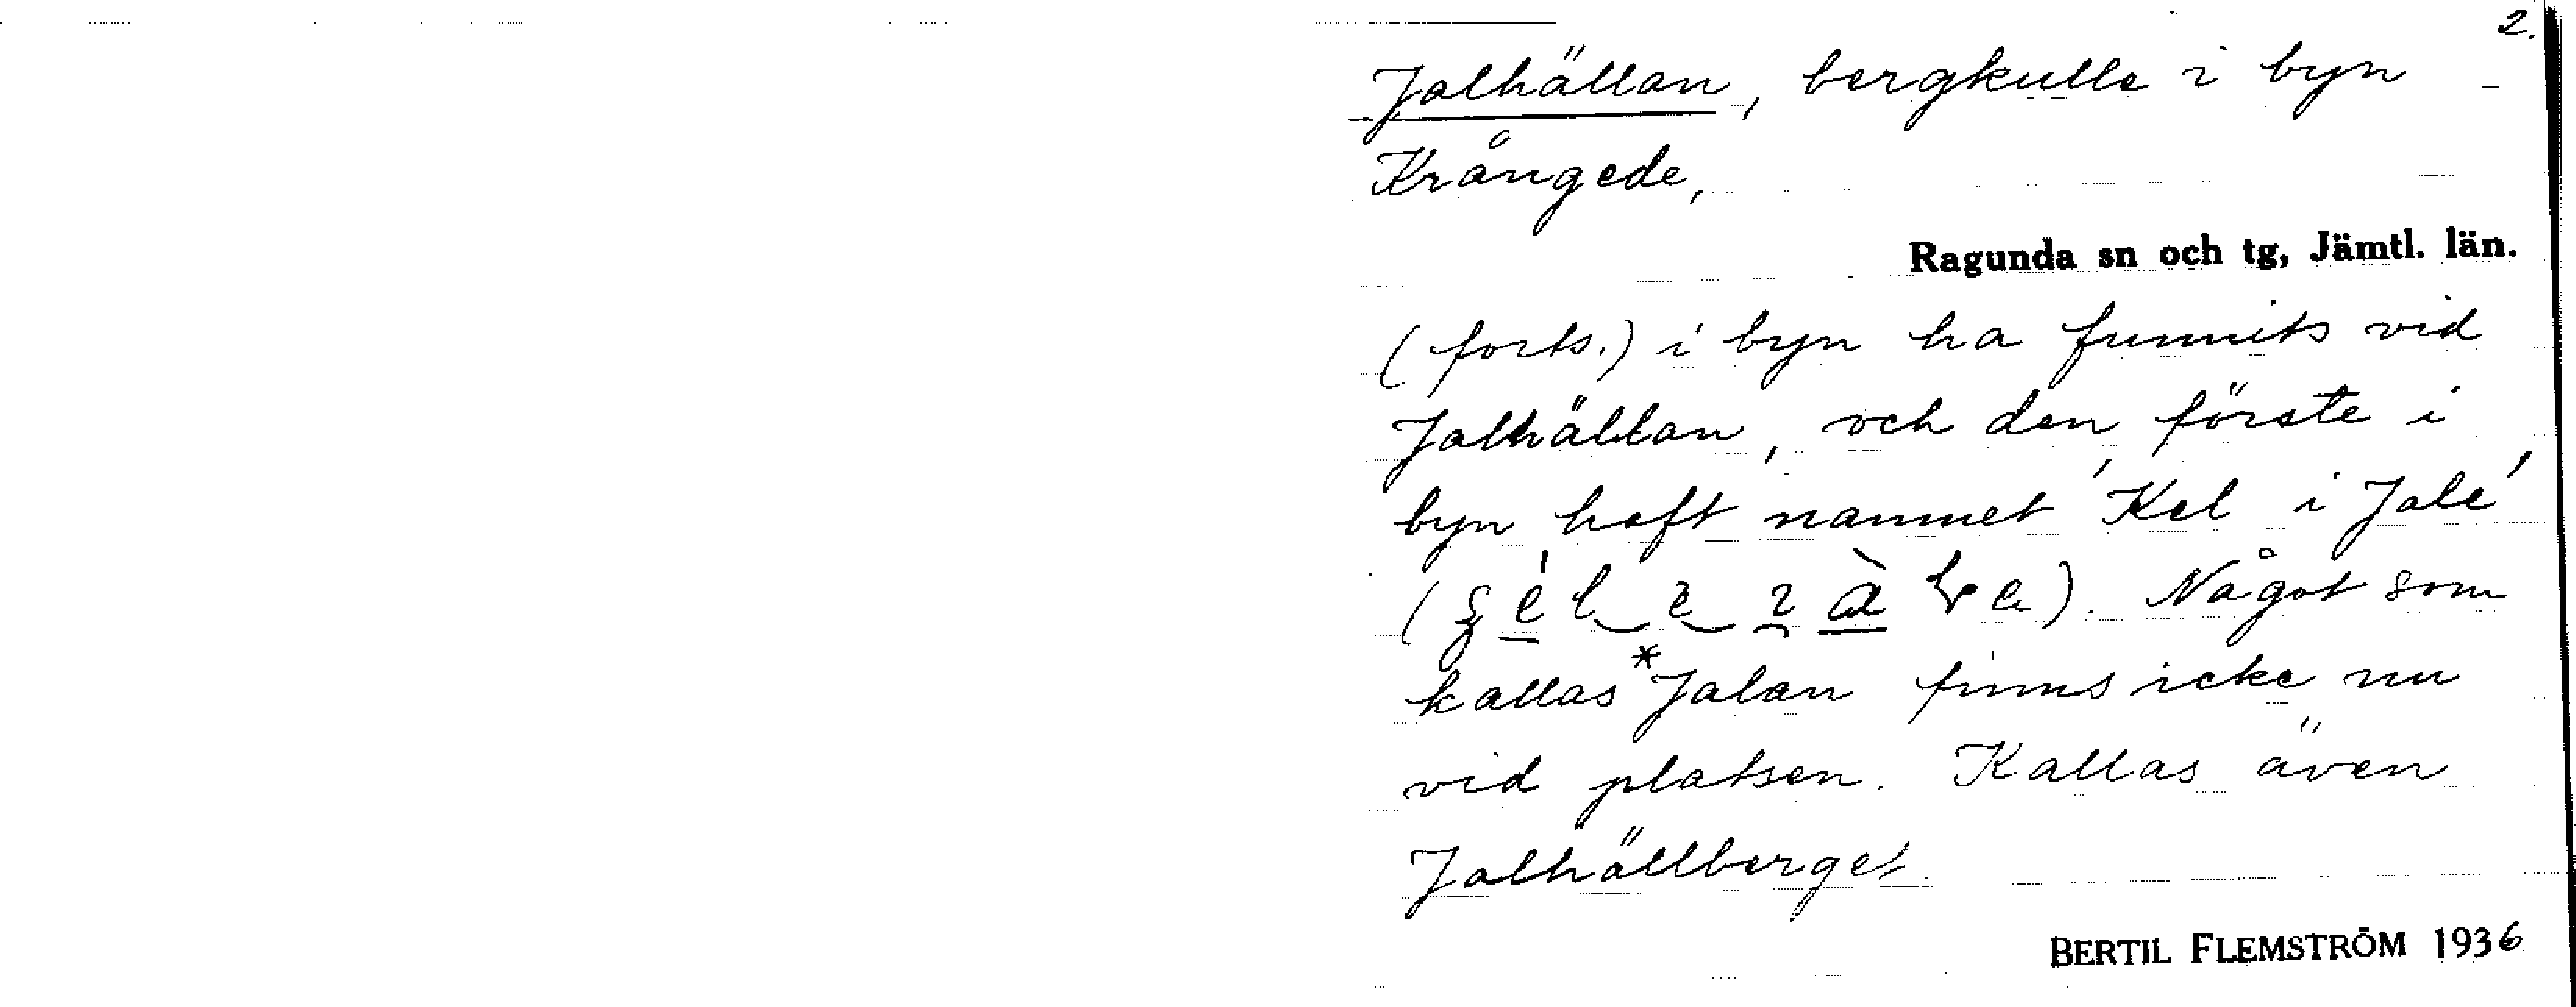 2.
Jalhällan, bergkulle i byn
Krångede,
Ragunda sn och tg, Jämtl. län.
(forts.) i byn ha funnits vid
Jalhällan, och den förste i
byn haft namnet 'Kel i Jale'
Något som
kallas *Jalan finns icke nu
vid platsen. Kallas även
Jalhällberget.
BERTIL FLEMSTRÖM 1936